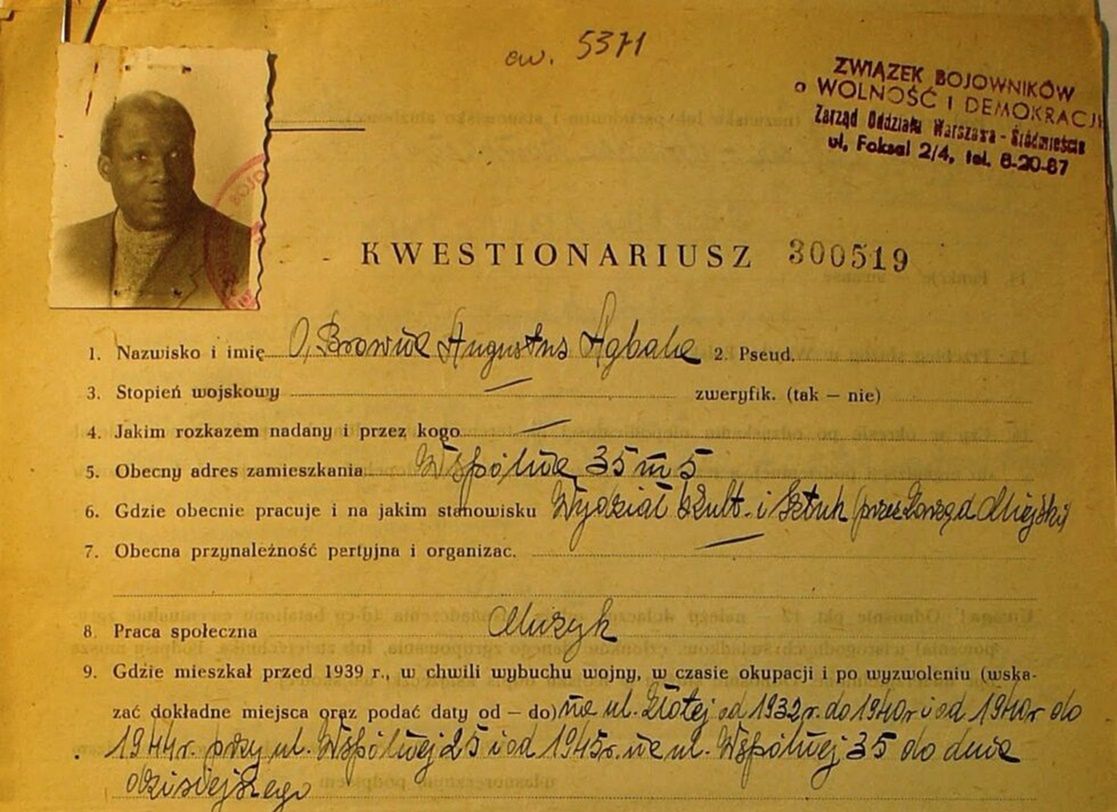 ew. 5371
ZWIĄZEK BOJOWNIKÓW
o WOLNOŚĆ I DEMOKRACJĘ
Zarząd Oddziału Warszawa - Śródmieście
ul. Foksal 2/4, tel. 8-20-87
KWESTIONARIUSZ 300519
1. Nazwisko i imię O, Browne Augustus Agbalu 2. Pseud.
3. Stopień wojskowy — zweryfik. (tak — nie)
4. Jakim rozkazem nadany i przez kogo —
5. Obecny adres zamieszkania Wspólna 35 m 5
6. Gdzie obecnie pracuje i na jakim stanowisku Wydział Kult. i Sztuk (przez Zarząd Miejski)
7. Obecna przynależność partyjna i organizac. —
8. Praca społeczna Muzyk
9. Gdzie mieszkał przed 1939 r., w chwili wybuchu wojny, w czasie okupacji i po wyzwoleniu (wska-
zać dokładne miejsca oraz podać daty od — do) na ul. Złotej od 1932r. do 1940r i od 1940r do
1944r. przy ul. Wspólnej 25 i od 1945r. na ul. Wspólnej 35 do dnia
dzisiejszego